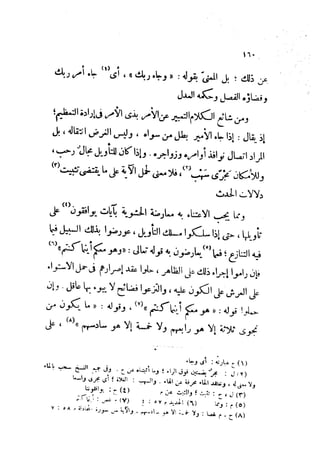 ١٦٠
عن ذلك ؛ بل المعنىّ بقوله : « وجاء ربك » ، أى(١) جاء أمر ربك
وقضاؤه الفصل وحكمه العدل
ومن شائع الكلام التعبير عن الأمر بذى الأمر فى إرادة التعظيم ؛
إذ يقال : إذا جاء الأمير بطل من سواه ، وليس الغرض انتقاله ، بل
المراد اتصال نوافذ أوامره وزواجره . وإذا كان للتأويل مجال رحب ،
وللإمكان مجرى سهب(٢) ، فلا معنى لحمل الآية على ما يقتضى تثبيت(٣)
دلالات الحدث
ومما يجب الاعتناء به معارضة الحشوية بآيات يوافقون(٤) على
تأويلها ، حتى إذا سلكوا مسلك التأويل ، عورضوا بذلك السبيل فيما
فيه التنازع ؛ فما(٥) يعارضون به قوله تعالى : « وهو معكم أينما كنتم »(٦)
فإن راموا إجراء ذلك على الظاهر ، حلوا عقد إصرارهم فى حمل الاستواء
على العرش على الكون عليه ، والتزموا فضائح لا يبوء بها عاقل . وإن
حملوا قوله : « وهو معكم أينما كنتم »(٧) ، وقوله : « ما يكون من
نجوى ثلاثة إلا هو رابعهم ولا خمسة إلا هو سادسهم »(٨) ، على
(١) ح عبارته : أى وجاء
(٢) ل :
(٣) ل ، ح :
(٤) ح : يوافقوننا
(٥) م : ومما
(٦) الحديد م ٥٧ : ٤
(٧) م نقص :
(٨) ح ، م نقصا : ولا خمسة إلا هو سادسهم . والآية من سورة المجادلة ٥٨ : ٧